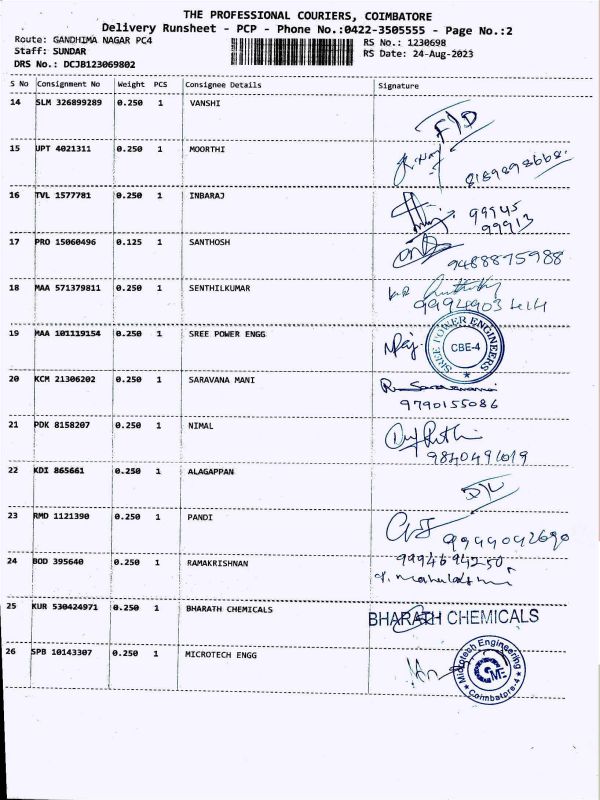 THE PROFESSIONAL COURIERS, COIMBATORE
Delivery Runsheet - PCP - Phone No.:0422-3505555 - Page No.:2
Route: GANDHIMA NAGAR PC4 RS No.: 1230698
Staff: SUNDAR RS Date: 24-Aug-2023
DRS No.: DCJB123069802
S No Consignment No Weight PCS Consignee Details Signature
14 SLM 326899289 0.250 1 VANSHI
15 UPT 4021311 0.250 1 MOORTHI
8189898668
16 TVL 1577781 0.250 1 INBARAJ
99945
99913
17 PRO 15060496 0.125 1 SANTHOSH
9488875988
18 MAA 571379811 0.250 1 SENTHILKUMAR
9994903414
19 MAA 101119154 0.250 1 SREE POWER ENGG
SREE POWER ENGINEERS
CBE-4
20 KCM 21306202 0.250 1 SARAVANA MANI
9790155086
21 PDK 8158207 0.250 1 NIMAL
9840491019
22 KDI 865661 0.250 1 ALAGAPPAN
D/L
23 RMD 1121390 0.250 1 PANDI
9999092690
24 BOD 395640 0.250 1 RAMAKRISHNAN
9994694250
25 KUR 530424971 0.250 1 BHARATH CHEMICALS
BHARATH CHEMICALS
26 SPB 10143307 0.250 1 MICROTECH ENGG
Microtech Engineering
Coimbatore-4